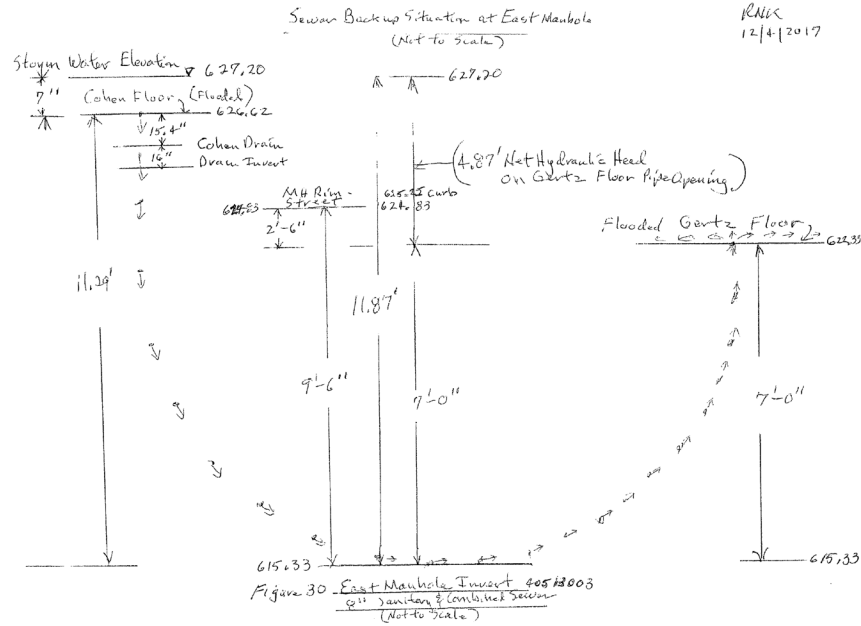 Sewer Backup Situation at East Manhole
(Not to Scale)
RNK
12/4/2017
Storm Water Elevation 627.20
7"
Cohen Floor (Flooded)
626.62
15.4"
Cohen Drain
14"
Drain Invert
627.20
(4.87' Net Hydraulic Head
on Gertz Floor Pipe Opening)
MH Rim - Street
Curb
624.83
624.83
2'-6"
Flooded Gertz Floor
622.33
11.29'
11.87'
9'-6"
7'-0"
7'-0"
615.33
615.33
Figure 30 East Manhole Invert
8" Sanitary & Combined Sewer
(Not to Scale)